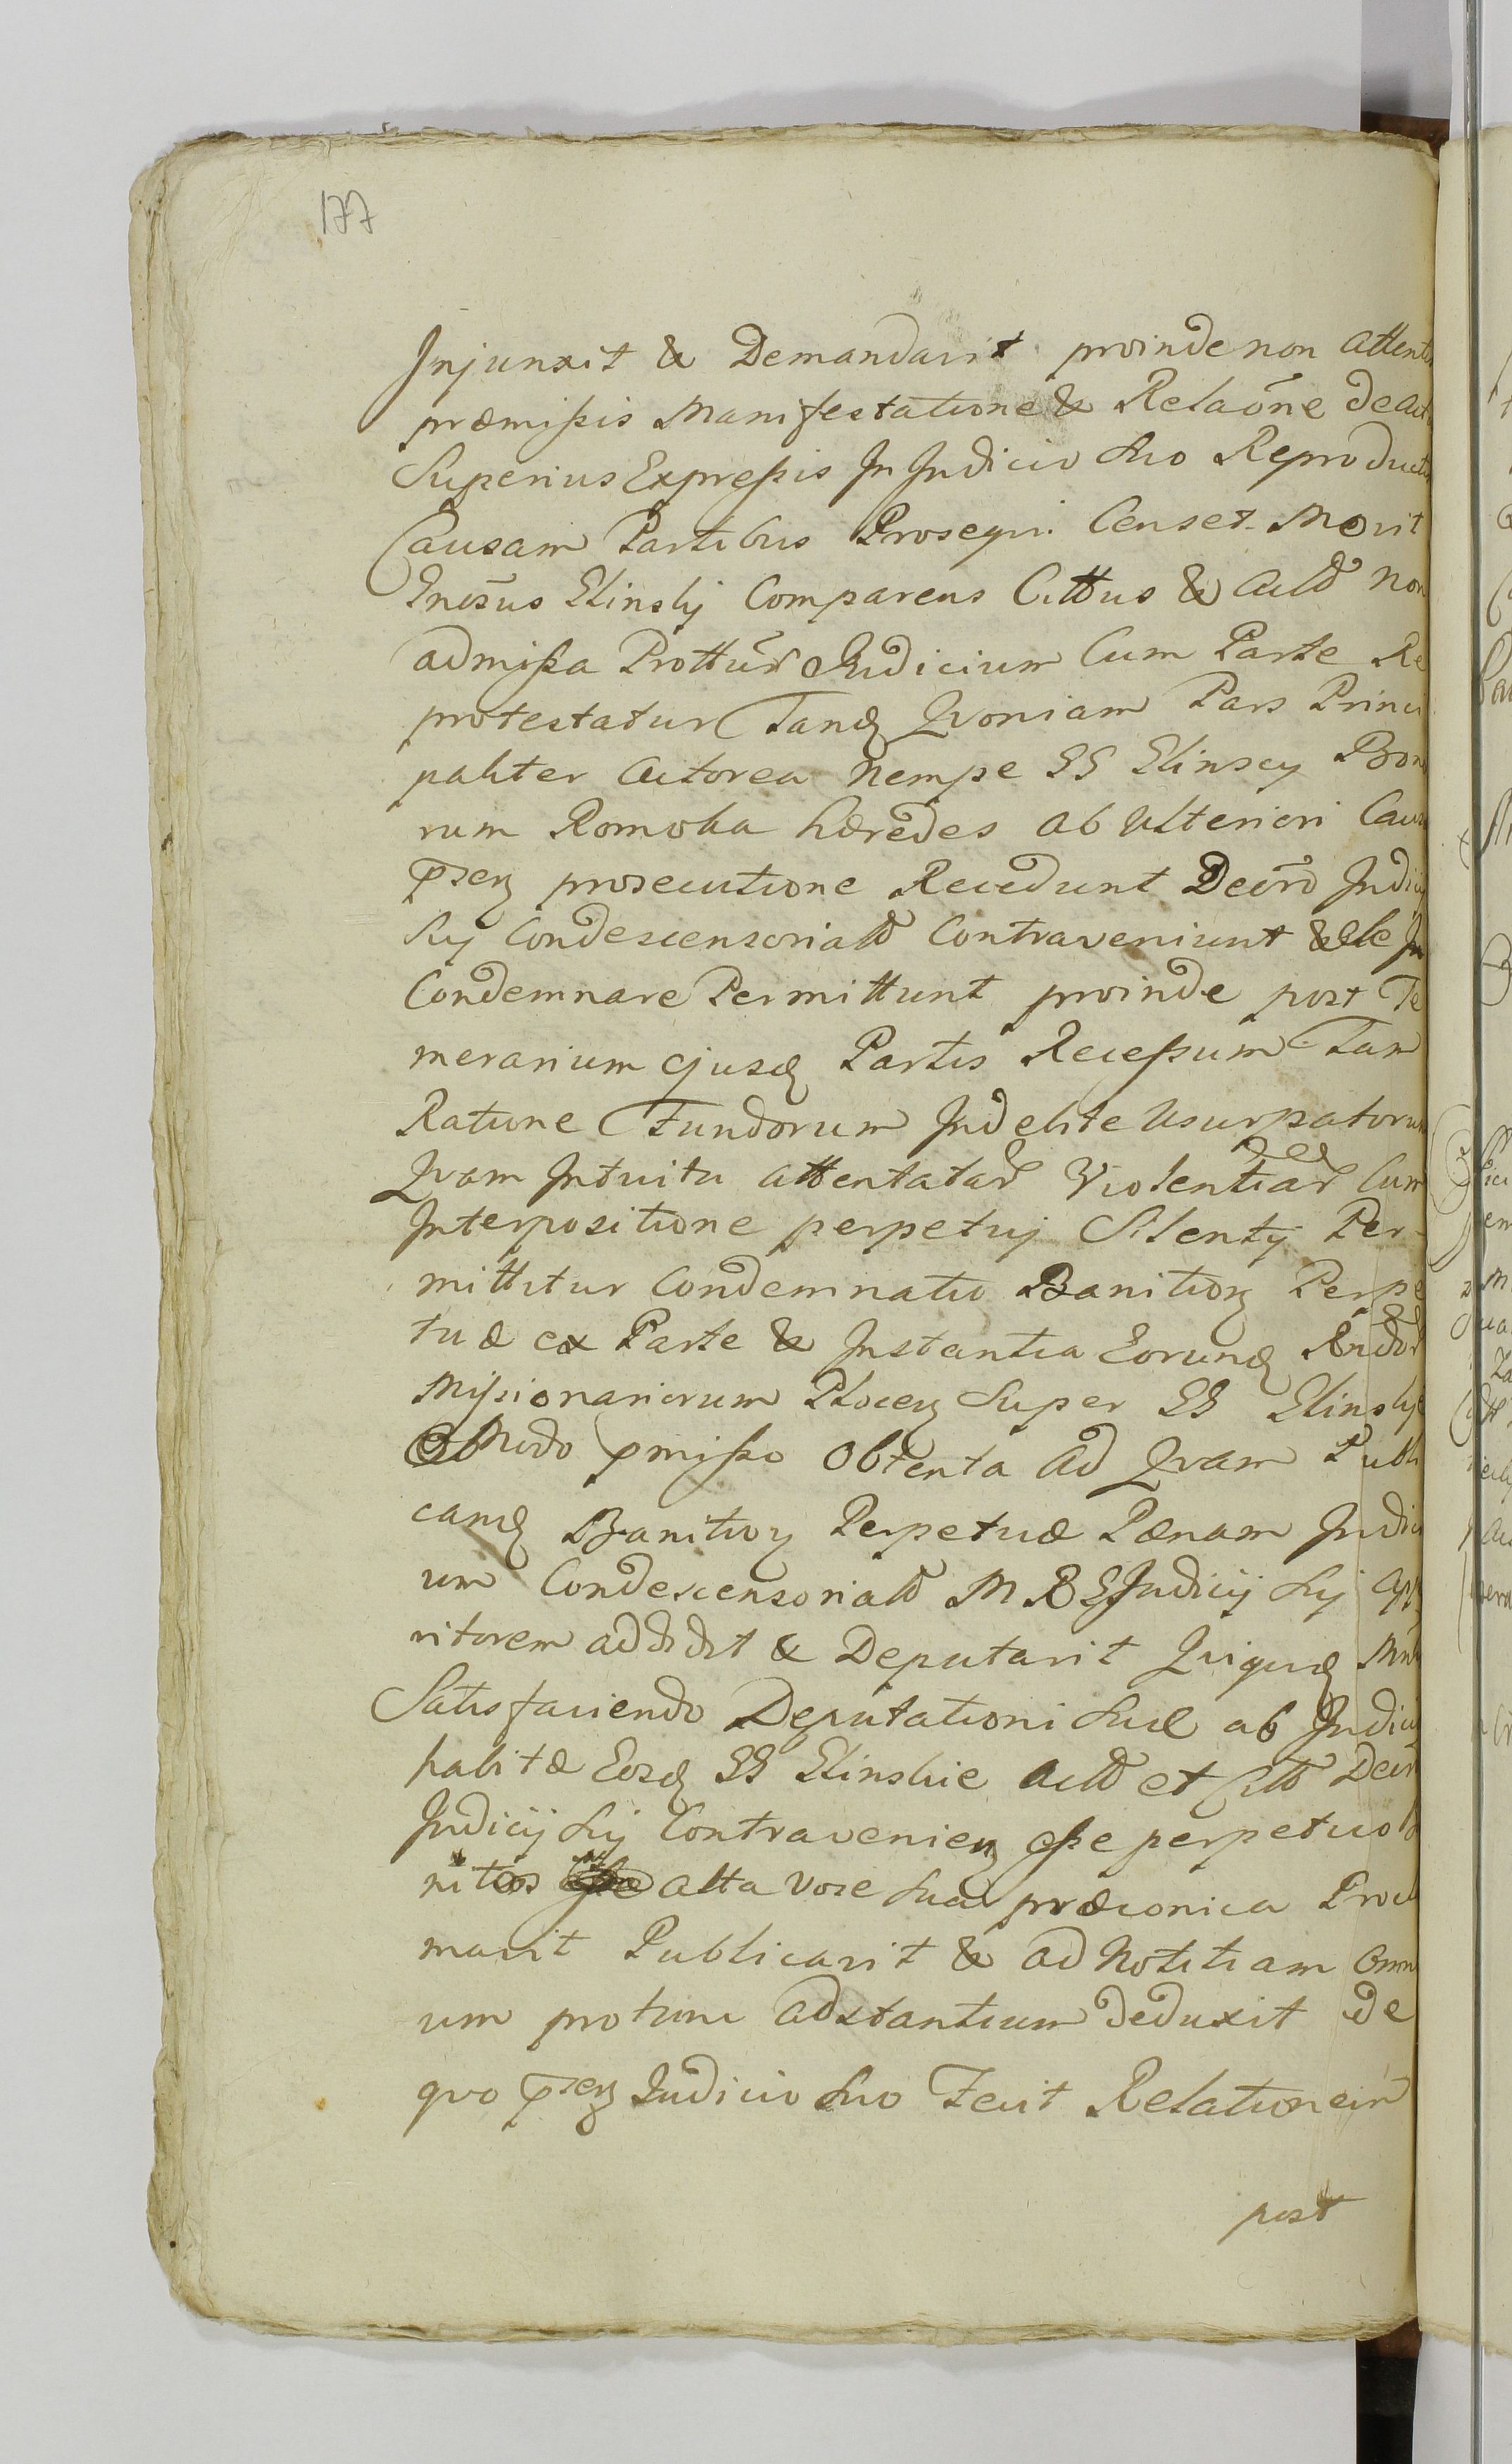 177
Injunxit & Demandavit proinde non attent
præmissis Manifestatione & Relaōne de act
Superius Expressis In Judicio Suo Reproduct
Causam Partibus Prosequi Censet Movit
Gnosus Elinskj Comparens Cittus & actt non
admissa Prottur Judicium Cum Parte Re
protestatur Tanq Qvoniam Pars Princi
paliter Actorea nempe GG Elinscy Bon
rum Romoka hæredes ab Ulteriori Caus
pnsen prosecutione Recedunt Decro Judicij
Suj Condescensorialt Contraveniunt & se In
Condemnare Permittunt proinde post Te
merarium ejusq Partis Recessum Tam
Ratione Fundorum Indebite Usurpatorum
Qvam Intuitu attentatar Violentiar Cum
Interpositione perpetuj Silentij Per-
mittitur Condemnatio Banition Perpe
tuæ ex Parte & Instantia Eorund Rndor
Missionariorum Plocen Super GG Elinskje
Modo pmisso Obtenta ad Qvam Publi
canq Banition Perpetuæ Pænam Judici
um Condescensorialt M R G Judicij Suj app
ritorem addidit & Deputavit Quiquq Mnlr
Satisfaciendo Deputationi Suæ ab Judicij
habitæ Eosq GG Elinskie actt et Citt Decr
Judicij Suj Contravenien esse perpetuo b
nitos alta voce Sua præconica Procl
mavit Publicavit & ad Notitiam Omn
um protunc adstantium deduxit de
qvo pnsen Judicio Suo Fecit Relationem
post